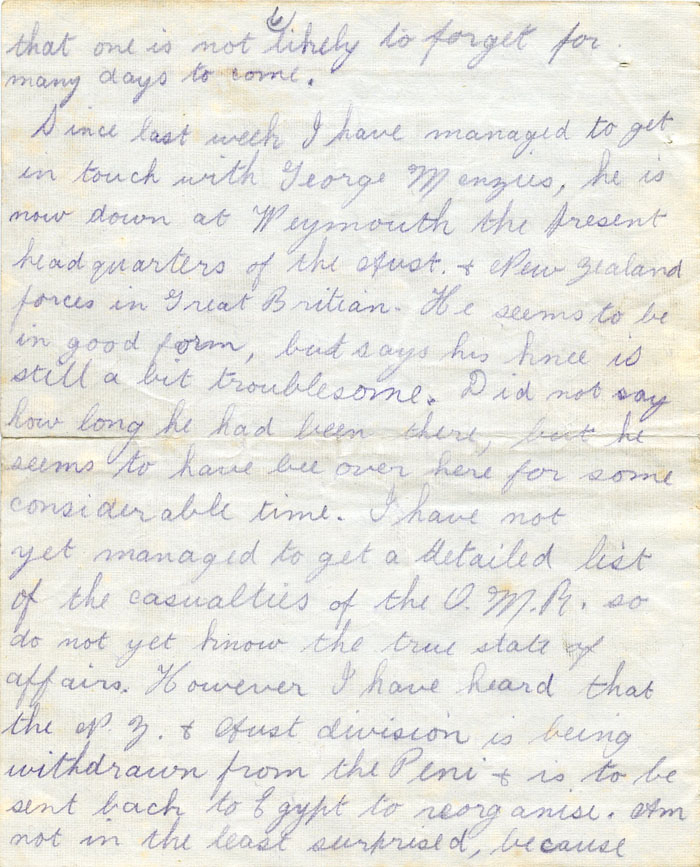 6
that one is not likely to forget for
many days to come.
Since last week I have managed to get
in touch with George Menzies, he is
now down at Weymouth the present
headquarters of the Aust. & New Zealand
forces in Great Britian. He seems to be
in good form, but says his knee is
still a bit troublesome. Did not say
how long he had been there, but he
seems to have bee over here for some
considerable time. I have not
yet managed to get a detailed list
of the casualties of the O.M.R. so
do not yet know the true state of
affairs. However I have heard that
the N.Z. & Aust division is being
withdrawn from the Peni & is to be
sent back to Egypt to reorganise. Am
not in the least surprised, because